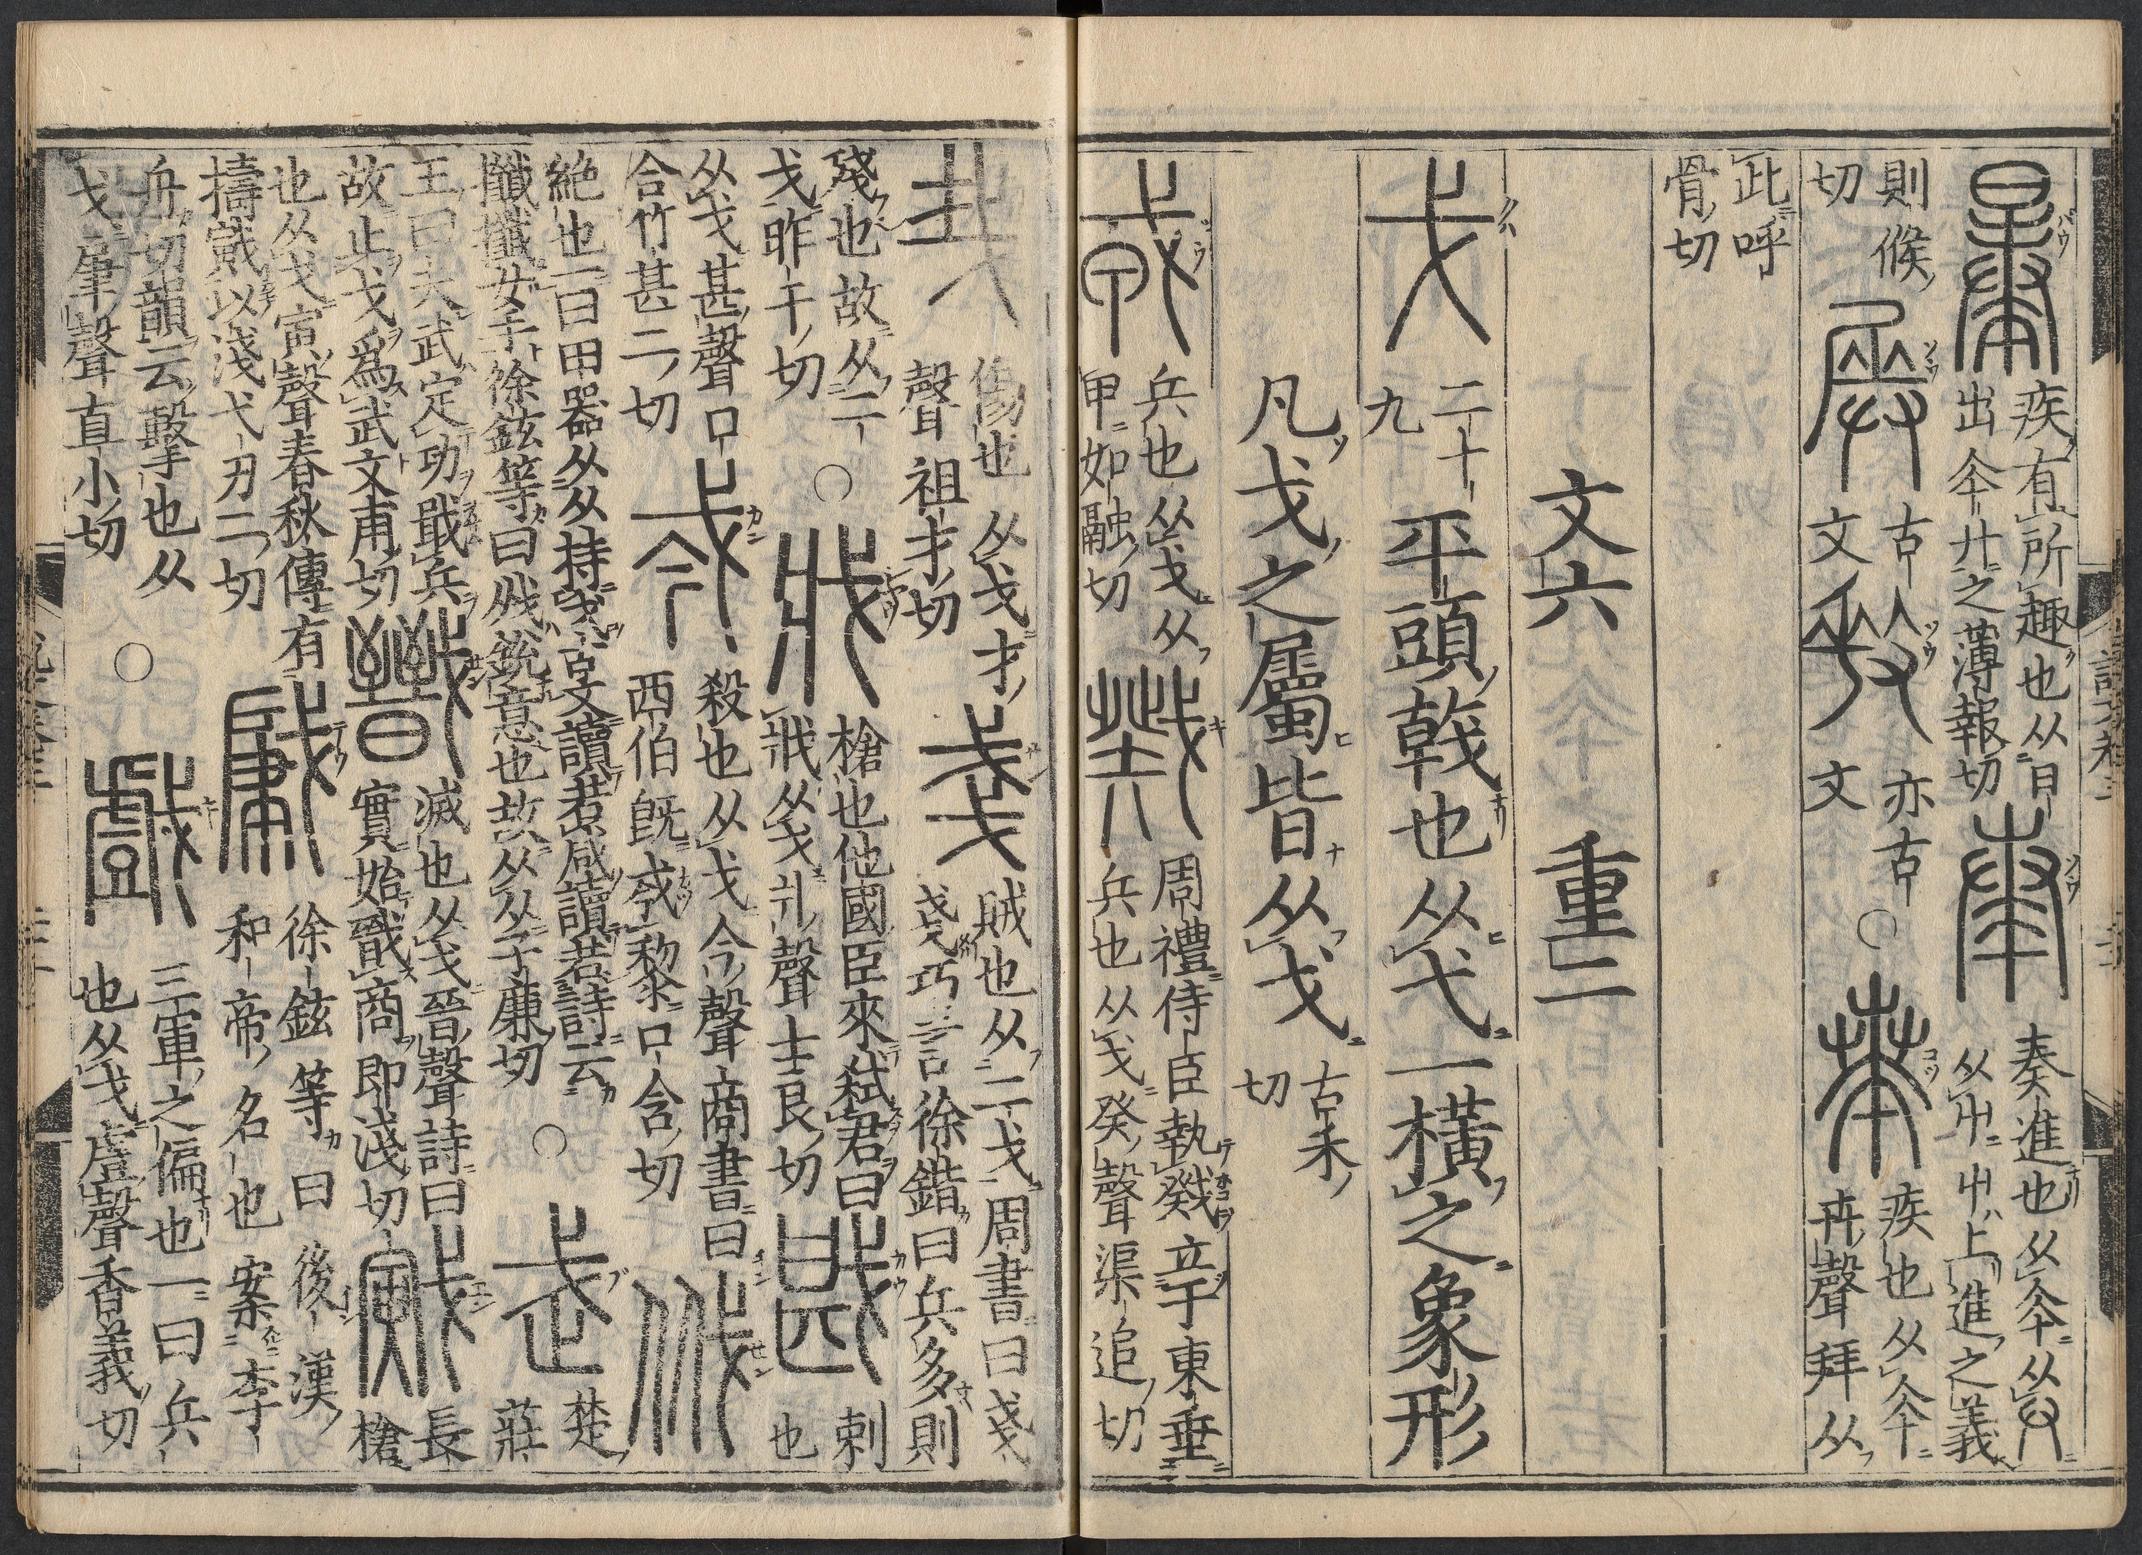 㬥
疾有所趣也从日
出夲廾之薄報切
奏
奏進也从夲从𠬞
从屮屮上進之義
則候
切
𡱀
古
文
𢍼
亦古
文
○
𠦪
疾也从夲
卉聲拜从
此呼
骨切
文六 重二
戈
二十
九
平頭戟也从弋一橫之象形
凡戈之屬皆从戈
古禾
切
戎
兵也从戈从
甲如融切
戣
周禮侍臣執戣立于東垂
兵也从戈癸聲渠追切
𢦏
傷也从戈才
聲祖才切
戔
賊也从二戈周書曰戔
戔巧言徐鍇曰兵多則
殘也故从二
戈昨干切
○
戕
槍也他國臣來弒君曰
戕从戈爿聲士良切
戡
刺
也
从戈甚聲口
含竹甚二切
𢦟
殺也从戈今聲商書曰
西伯旣𢦟黎口含切
𢦒
絶也一曰田器从从持戈古文讀若咸讀若詩云
攕攕女手徐鉉等曰𢦒銳意也故从从子廉切
○
武
楚
莊
王曰夫武定功戢兵
故止戈爲武文甫切
戩
滅也从戈晉聲詩曰
實始戩商即淺切
戭
長
槍
也从戈寅聲春秋傳有
擣戭以淺弋刃二切
肈
徐鉉等曰後漢
和帝名也案李
舟切韻云擊也从
戈肁聲直小切
○
戲
三軍之偏也一曰兵
也从戈䖒聲香義切